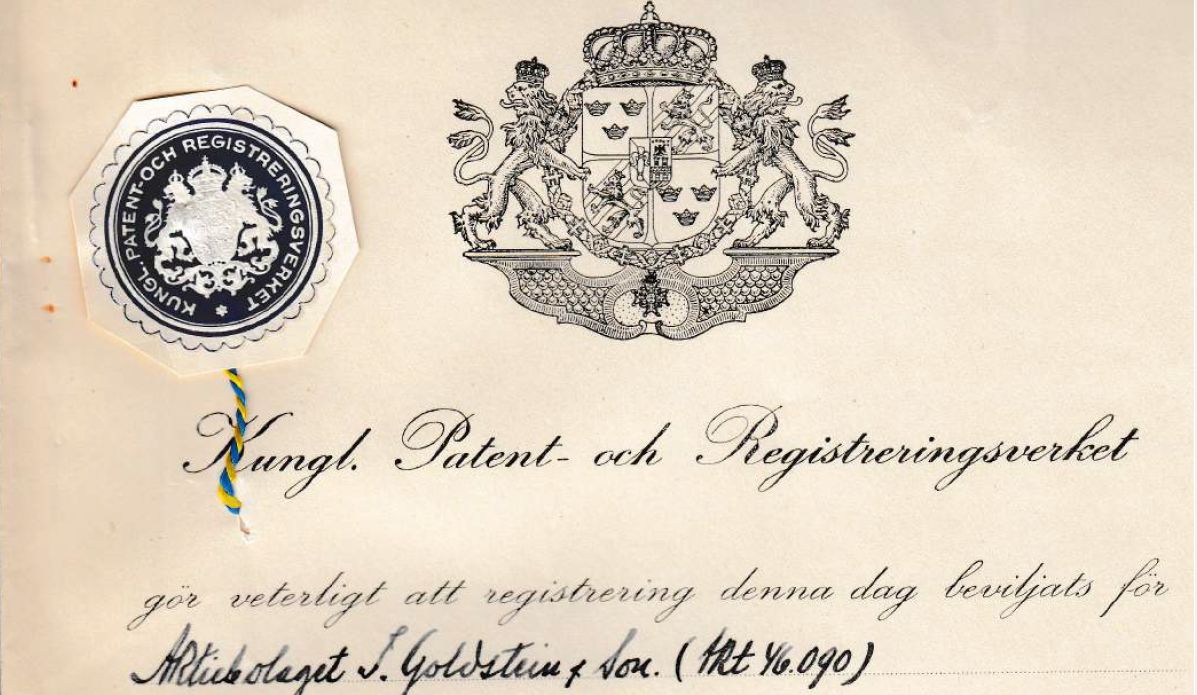 KUNGL. PATENT- OCH REGISTRERINGSVERKET *
Kungl. Patent- och Registreringsverket
gör veterligt att registrering denna dag beviljats för
Aktiebolaget I. Goldstein & Son. (Akt 46.090)